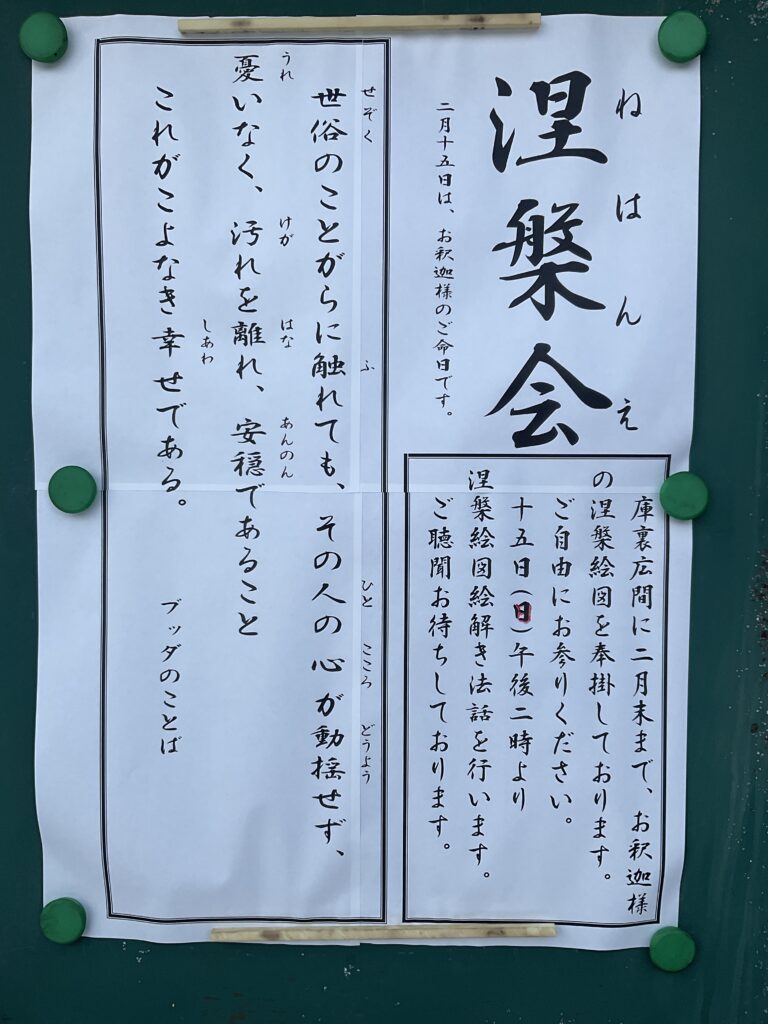 涅槃会
ねはんえ
二月十五日は、お釈迦様のご命日です。
庫裏広間に二月末まで、お釈迦様
の涅槃絵図を奉掛しております。
ご自由にお参りください。
十五日(日)午後二時より
涅槃絵図絵解き法話を行います。
ご聴聞お待ちしております。
世俗のことがらに触れても、その人の心が動揺せず、
せぞく ふ ひと こころ どうよう
憂いなく、汚れを離れ、安穏であること
うれ けが はな あんのん
これがこよなき幸せである。
しあわ
ブッダのことば